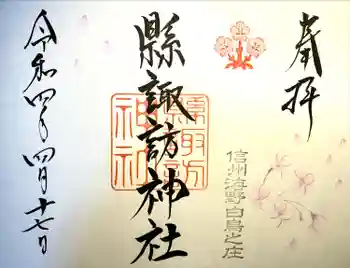 奉拝
信州海野白鳥之庄
縣諏訪神社
縣諏訪
神社
令和四年四月十七日